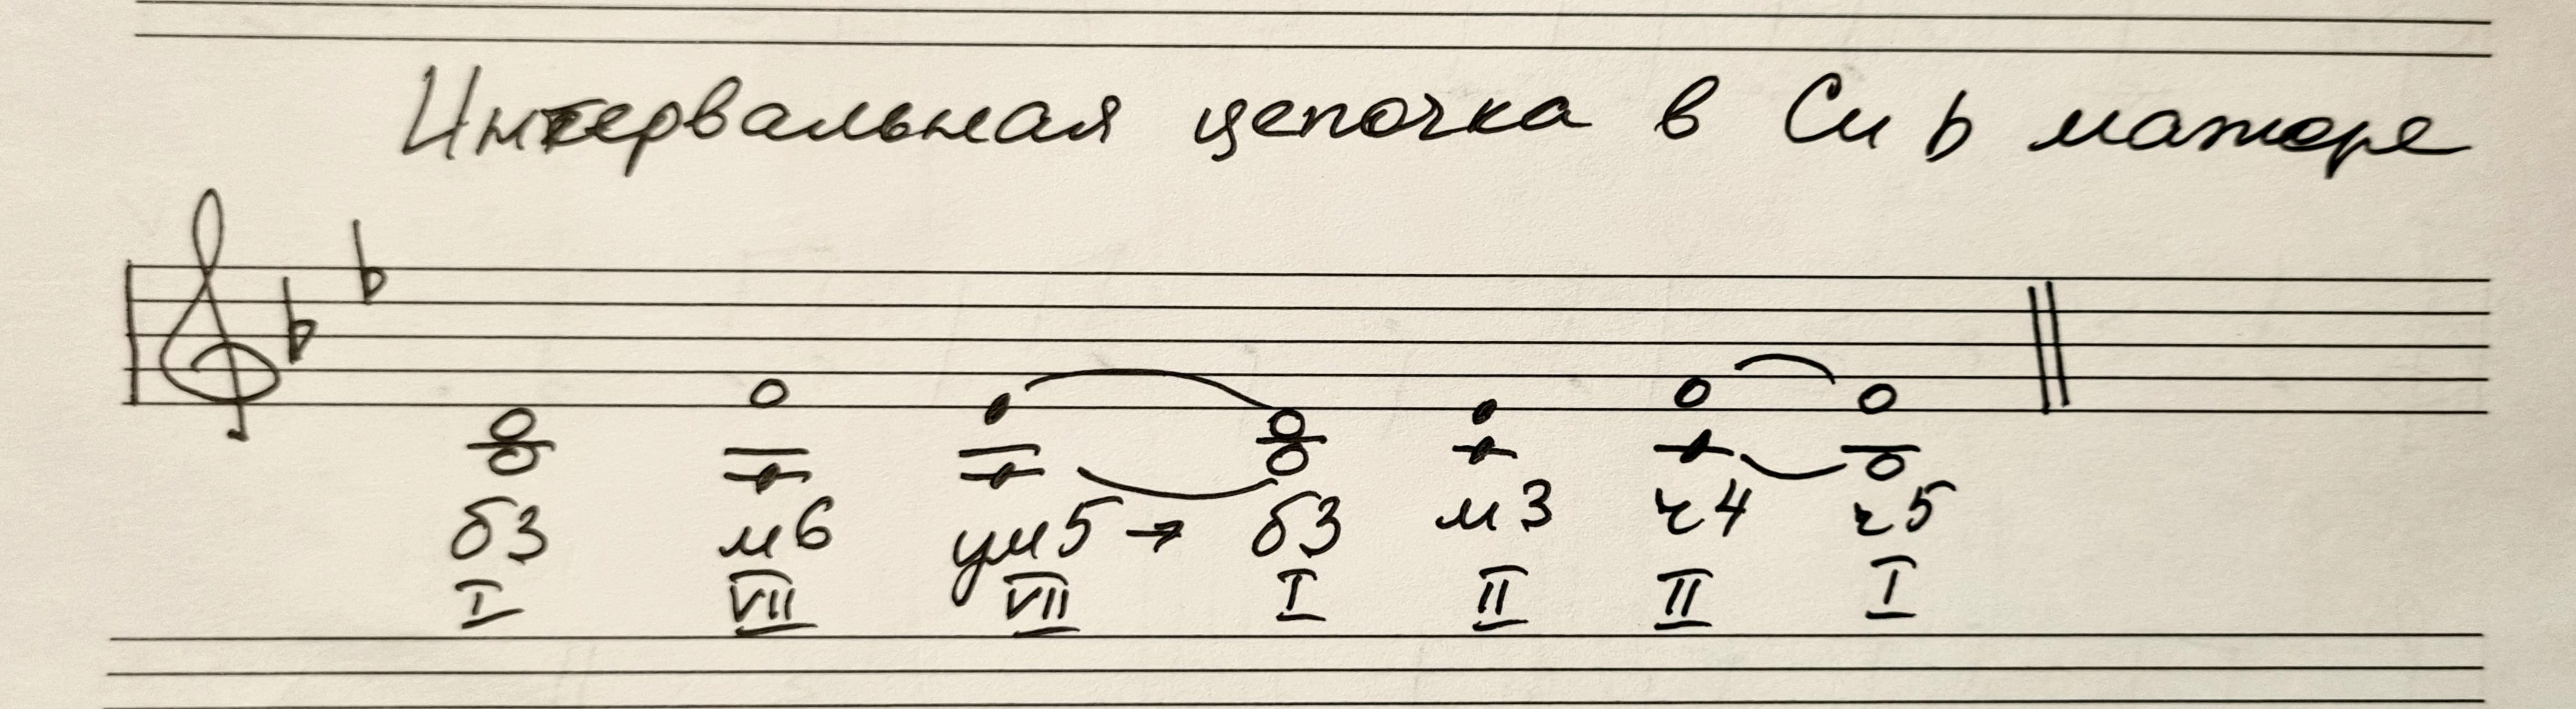 Интервальная цепочка в Си b мажоре
б3 м6 ум5 → б3 м3 ч4 ч5
I VII VII I II II I